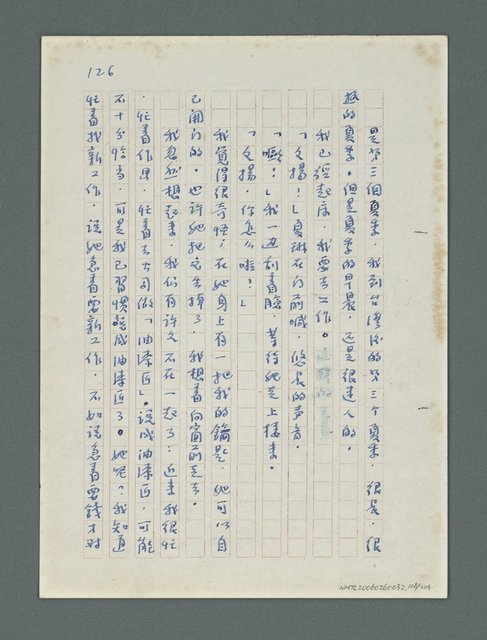 126
是第三個夏季。我到台灣後的第三个夏季。很長。很
熱的夏季。但是夏季的早晨。还是很迷人的。
我已經起床。我要去工作。
「文揚！」夏琳在门前喊。悠長的声音。
「噢！」我一边刮着臉。等待她走上樓来。
「文揚。你怎么啦！」
我覺得很奇怪。在她身上有一把我的鑰匙。她可以自
己開门的。也許她把它丟掉了。我想着向窗前走去。
我忽然想起来。我們有許久不在一起了。近来我很忙
。忙着作畫。忙着去公司做「油漆匠」。說成油漆匠。可能
不十分恰当。可是我已習慣說成油漆匠了。她呢？我知道
忙着找新工作。說她急着要新工作。不如說急着要錢才对
NMTL20060260032 128/224